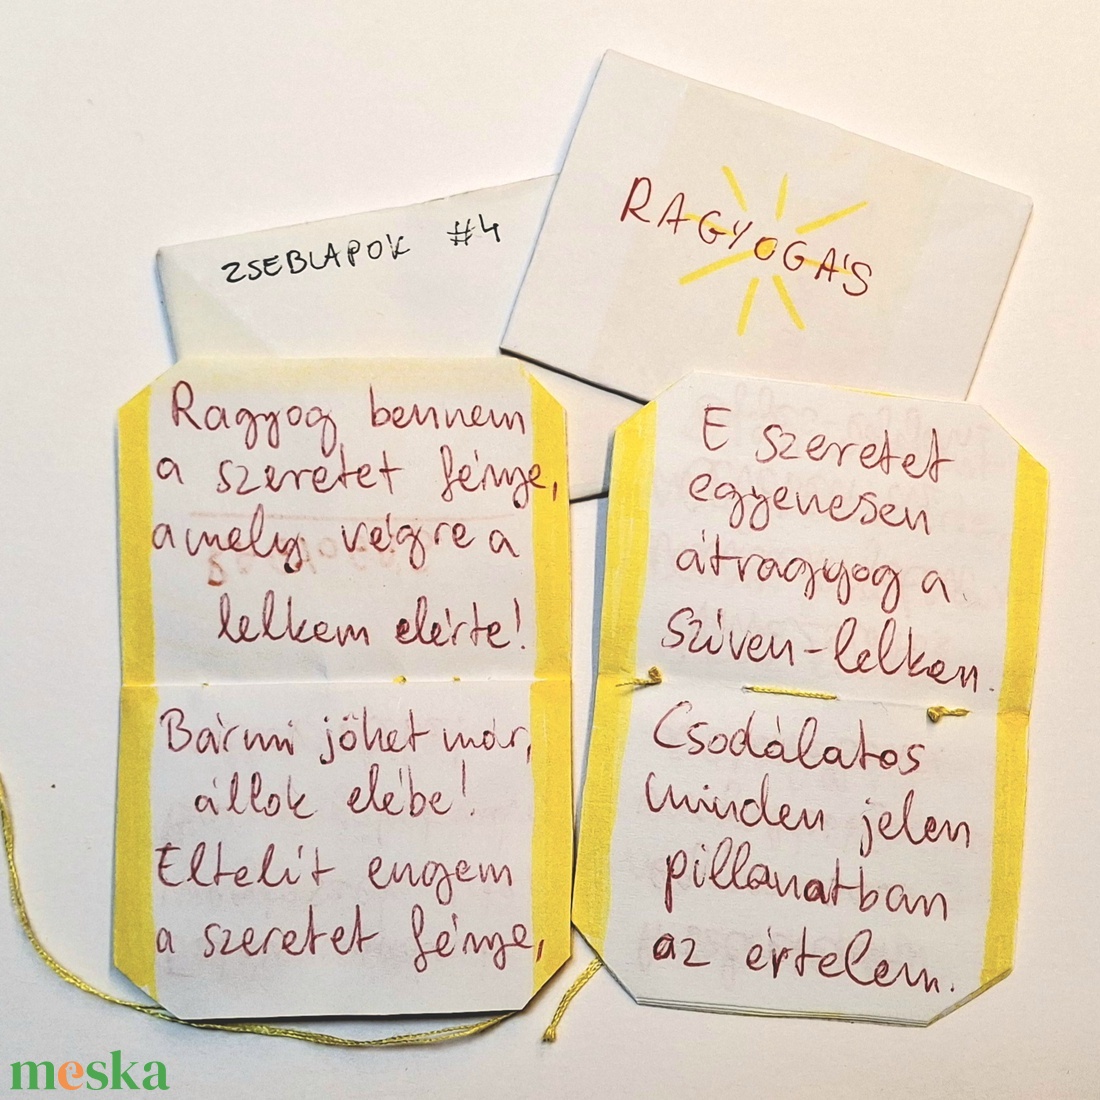 ZSEBLAPOK #4
RAGYOGÁS
Ragyog bennem
a szeretet fénye,
amely végre a
lelkem elérte!
Bármi jöhet már,
állok elébe!
Eltelít engem
a szeretet fénye,
E szeretet
egyenesen
átragyog a
szíven-lelken.
Csodálatos
minden jelen
pillanatban
az értelem.
meska